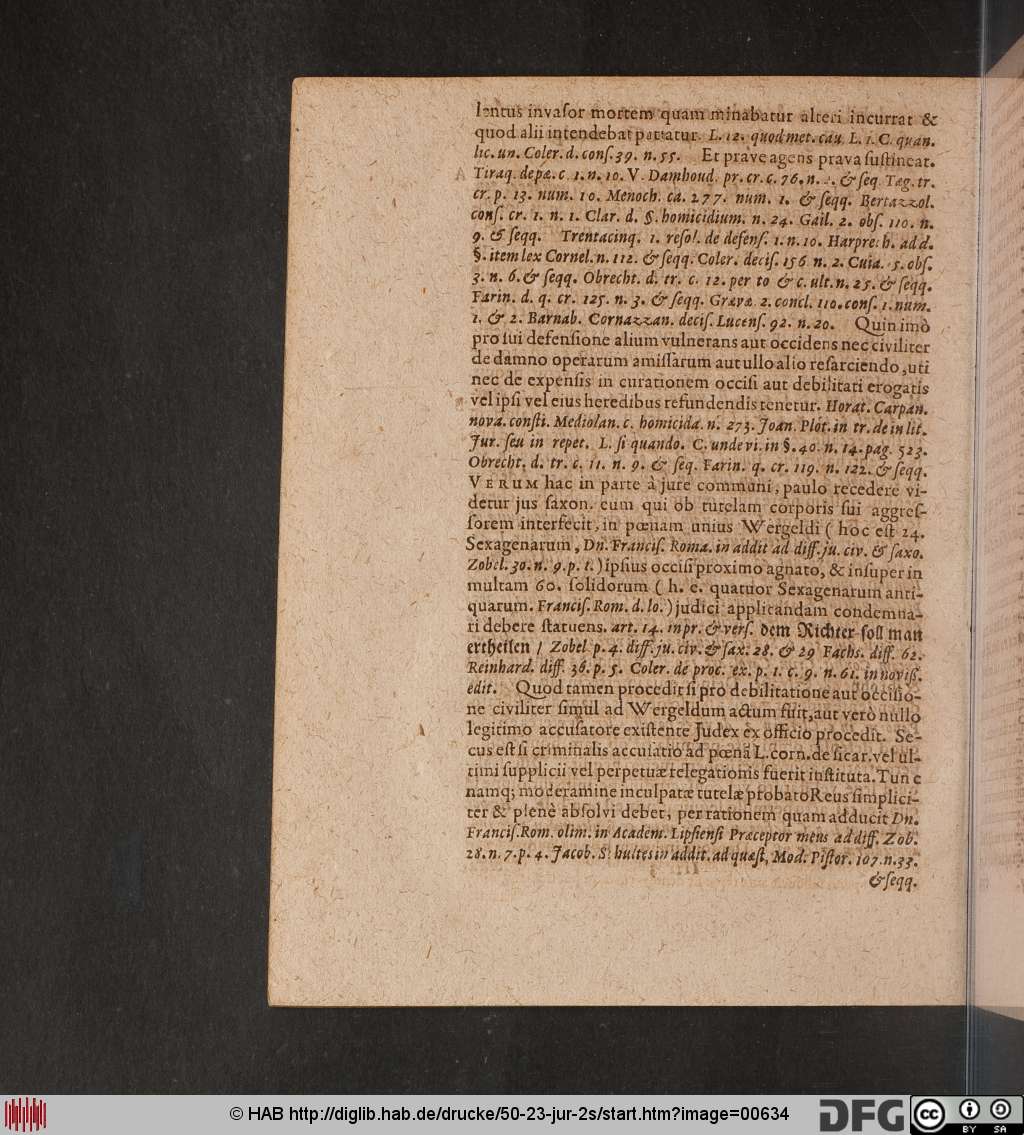 lentus invaſor mortem quam minabatur alteri incurrat &
quod alii intendebat patiatur. L. 12. quod met. cau. L. 1. C. quan.
lic. un. Coler. d. conſ. 39. n. 55. Et prave agens prava ſuſtineat.
Tiraq. de pœ. c 1. n. 10. V. Damhoud. pr. cr. c. 76. n. & ſeq. Tag. tr.
cr. p. 13. num. 10. Menoch. ca. 277. num. 1. & ſeqq. Bertazzol.
conſ. cr. 1. n. 1. Clar. d. §. homicidium. n. 24. Gail. 2. obſ. 110. n.
9. & ſeqq. Trentacinq. 1. reſol. de defenſ. 1. n. 10. Harprech. ad d.
§. item lex Cornel. n. 112. & ſeqq. Coler. deciſ. 156 n. 2. Cuia. 5. obſ.
3. n. 6. & ſeqq. Obrecht. d. tr. c. 12. per to & c. ult. n. 25. & ſeqq.
Farin. d. q. cr. 125. n. 3. & ſeqq. Grævæ 2. concl. 110. conſ. 1. num.
1. & 2. Barnab. Cornazzan. deciſ. Lucenſ. 92. n. 20. Quin imò
pro ſui defenſione alium vulnerans aut occidens nec civiliter
de damno operarum amiſſarum aut ullo alio reſarciendo, uti
nec de expenſis in curationem occiſi aut debilitati erogatis
vel ipſi vel eius heredibus refundendis tenetur. Horat. Carpan.
nova. conſti. Mediolan. c. homicida. n. 273. Joan. Plot. in tr. de in lit.
Jur. ſeu in repet. L. ſi quando. C. unde vi. in §. 40. n. 14. pag. 523.
Obrecht. d. tr. c. 11. n. 9. & ſeq. Farin. q. cr. 119. n. 122. & ſeqq.
VERUM hac in parte à jure communi, paulo recedere vi-
detur jus ſaxon. eum qui ob tutelam corporis ſui aggreſ-
ſorem interfecit, in pœnam unius Wergeldi ( hoc eſt 24.
Sexagenarum, Dn. Franciſ. Roma. in addit ad diff. ju. civ. & ſaxo.
Zobel. 30. n. 9. p. 1. ) ipſius occiſi proximo agnato, & inſuper in
multam 60. ſolidorum ( h. e. quatuor Sexagenarum anti-
quarum. Franciſ. Rom. d. lo. ) judici applicandam condemna-
ri debere ſtatuens. art. 14. in pr. & verſ. dem Richter ſoll man
ertheilen / Zobel p. 4. diff. ju. civ. & ſax. 28. & 29 Fachs. diff. 62.
Reinhard. diff. 36. p. 5. Coler. de proc. ex. p. 1. c. 9. n. 61. in noviſſ.
edit. Quod tamen procedit ſi pro debilitatione aut occiſio-
ne civiliter ſimul ad Wergeldum actum fuit, aut verò nullo
legitimo accuſatore exiſtente Judex ex officio procedit. Se-
cus eſt ſi criminalis accuſatio ad pœnã L. corn. de ſicar. vel ul-
timi ſupplicii vel perpetuæ relegationis fuerit inſtituta. Tunc
namq; moderamine inculpatæ tutelæ probato Reus ſimplici-
ter & plenè abſolvi debet, per rationem quam adducit Dn.
Franciſ. Rom. olim. in Academ. Lipſienſi Præceptor meus ad diff. Zob.
28. n. 7. p. 4. Jacob. Schultes in addit. ad quæſt, Mod. Piſtor. 107. n. 33.
& ſeqq.
© HAB http://diglib.hab.de/drucke/50-23-jur-2s/start.htm?image=00634
DFG
cc
BY SA